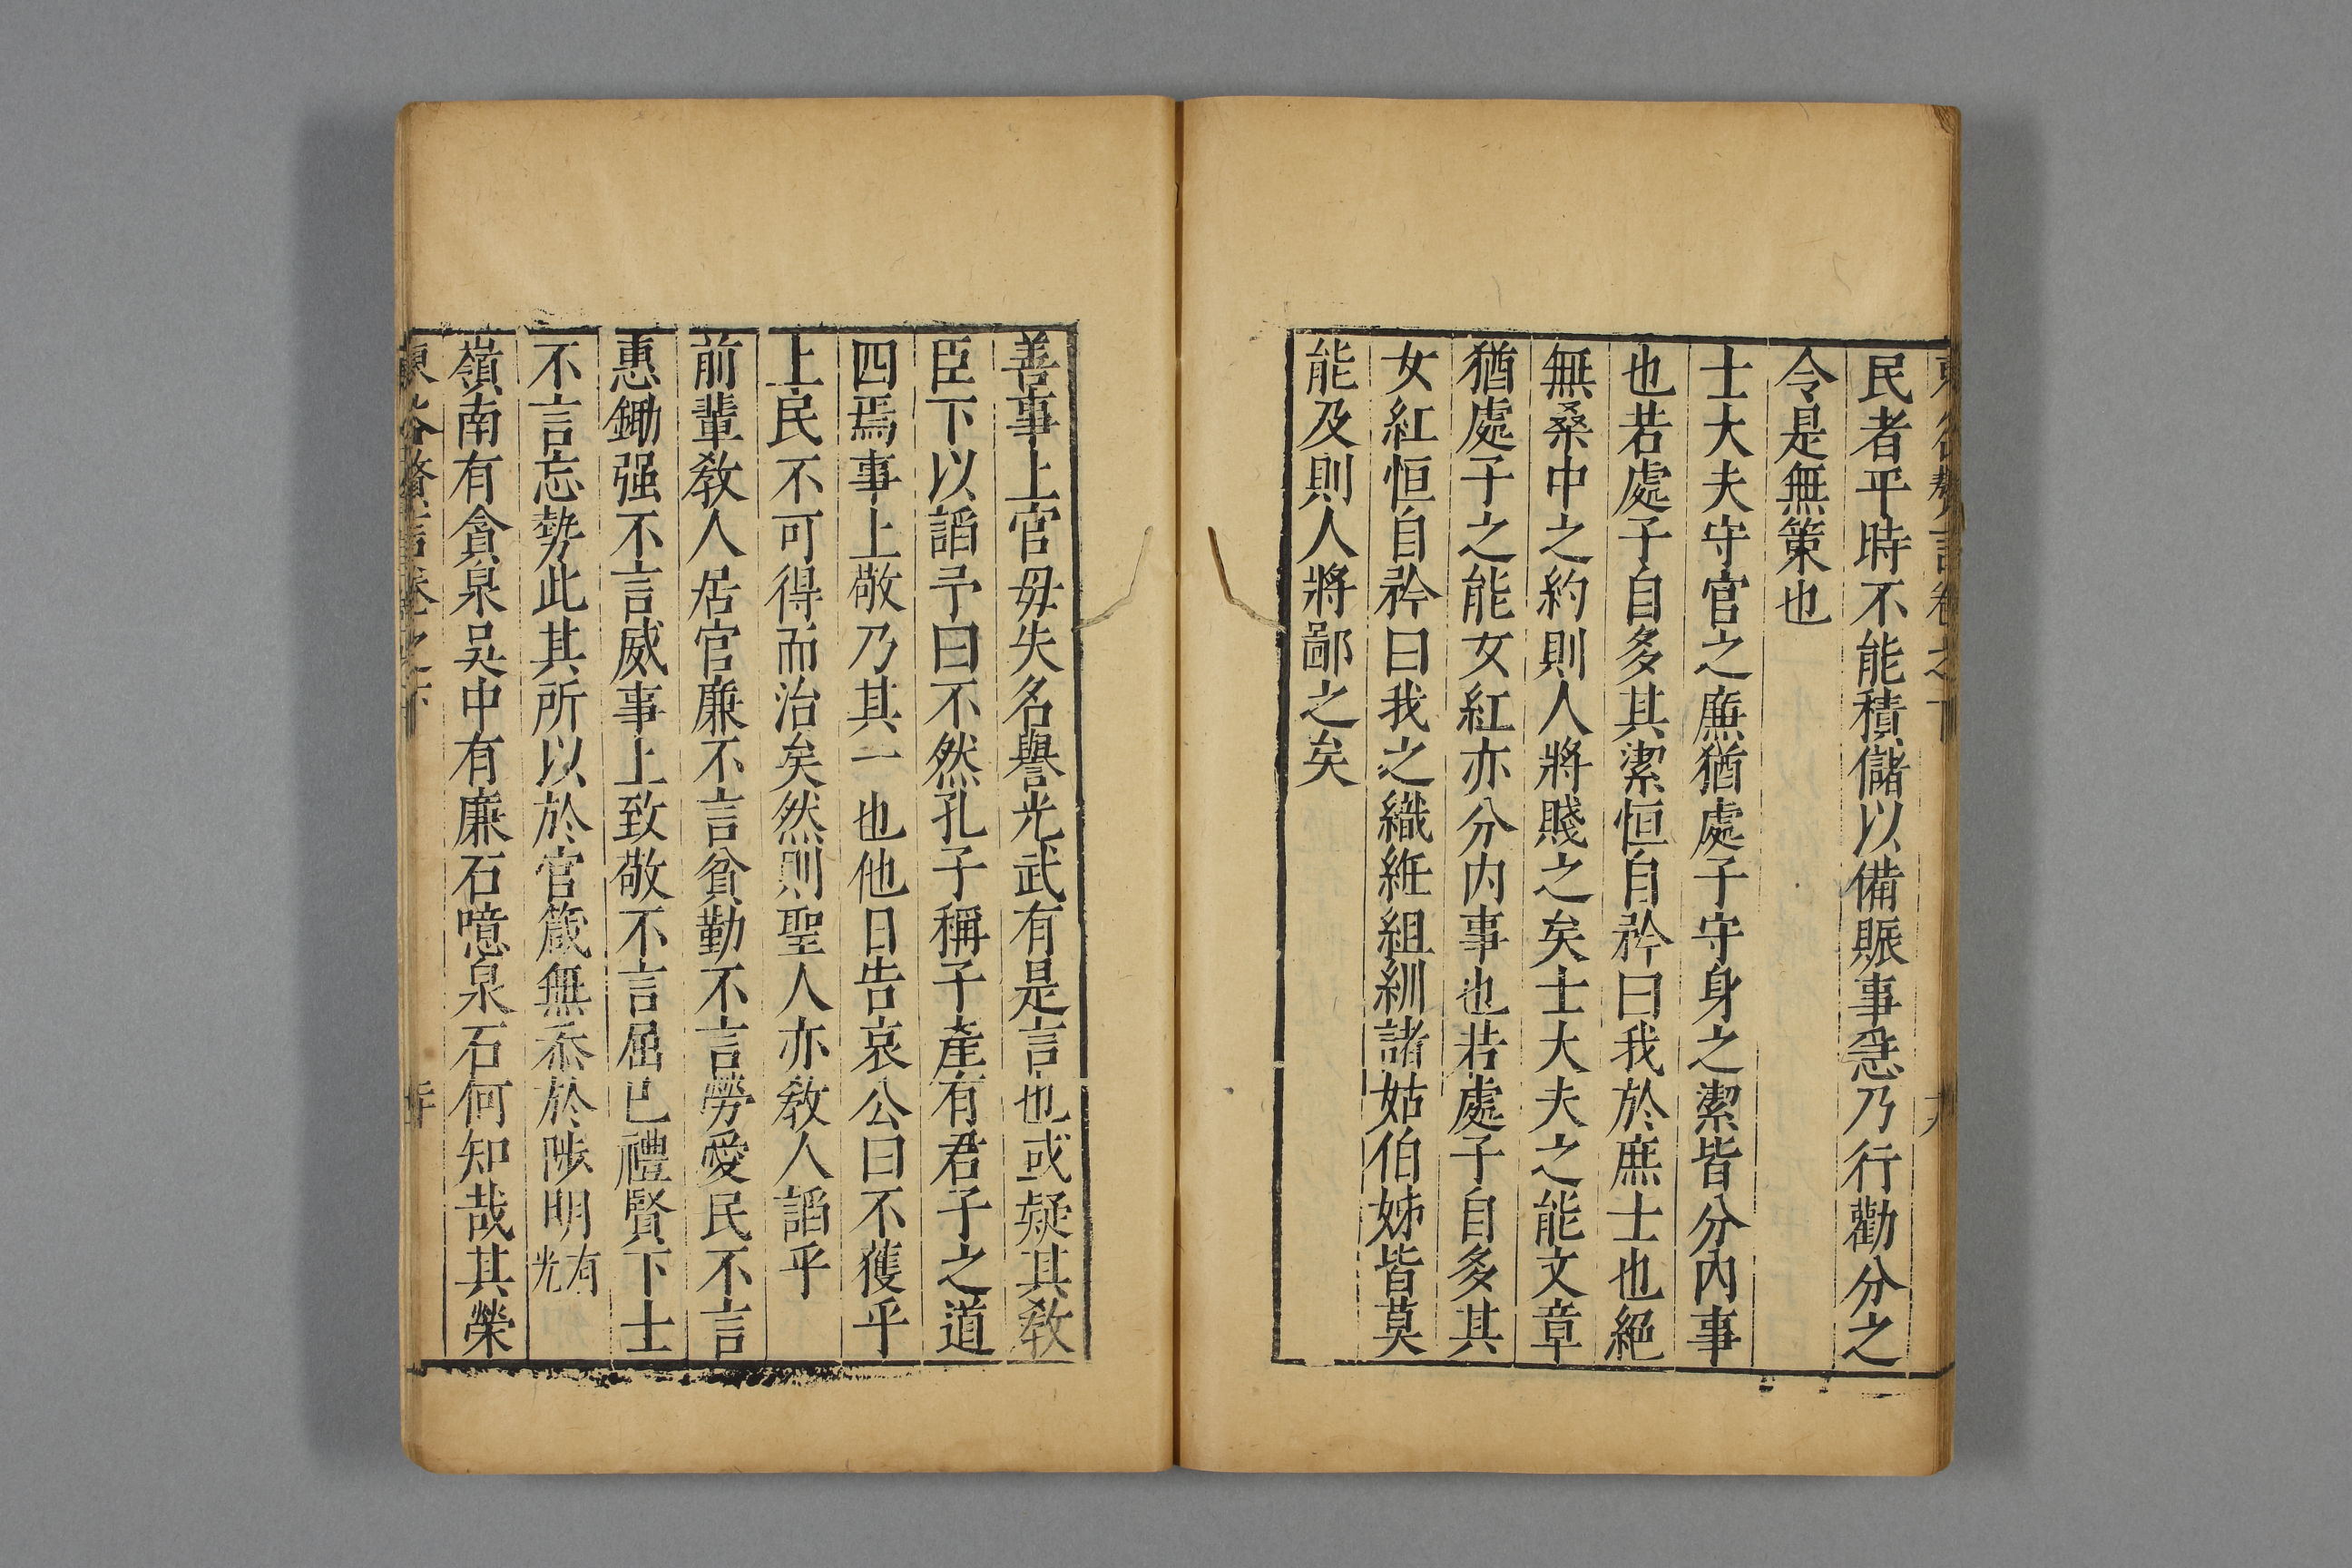 民者平時不能積儲以備賑事急乃行勸分之
令是無策也
士大夫守官之廉猶處子守身之潔皆分內事
也若處子自多其潔恒自矜曰我於庶士也絕
無桑中之約則人將賤之矣士大夫之能文章
猶處子之能女紅亦分內事也若處子自多其
女紅恒自矜曰我之織絍組紃諸姑伯姊皆莫
能及則人將鄙之矣
善事上官毋失名譽光武有是言也或疑其教
臣下以謟予曰不然孔子稱子產有君子之道
四焉事上敬乃其一也他日告哀公曰不獲乎
上民不可得而治矣然則聖人亦教人謟乎
前輩教人居官廉不言貧勤不言勞愛民不言
惠鋤强不言威事上致敬不言屈已禮賢下士
不言忘勢此其所以於官箴無忝於陟明有光
嶺南有貪泉吳中有廉石噫泉石何知哉其榮
東谷贅言卷之下